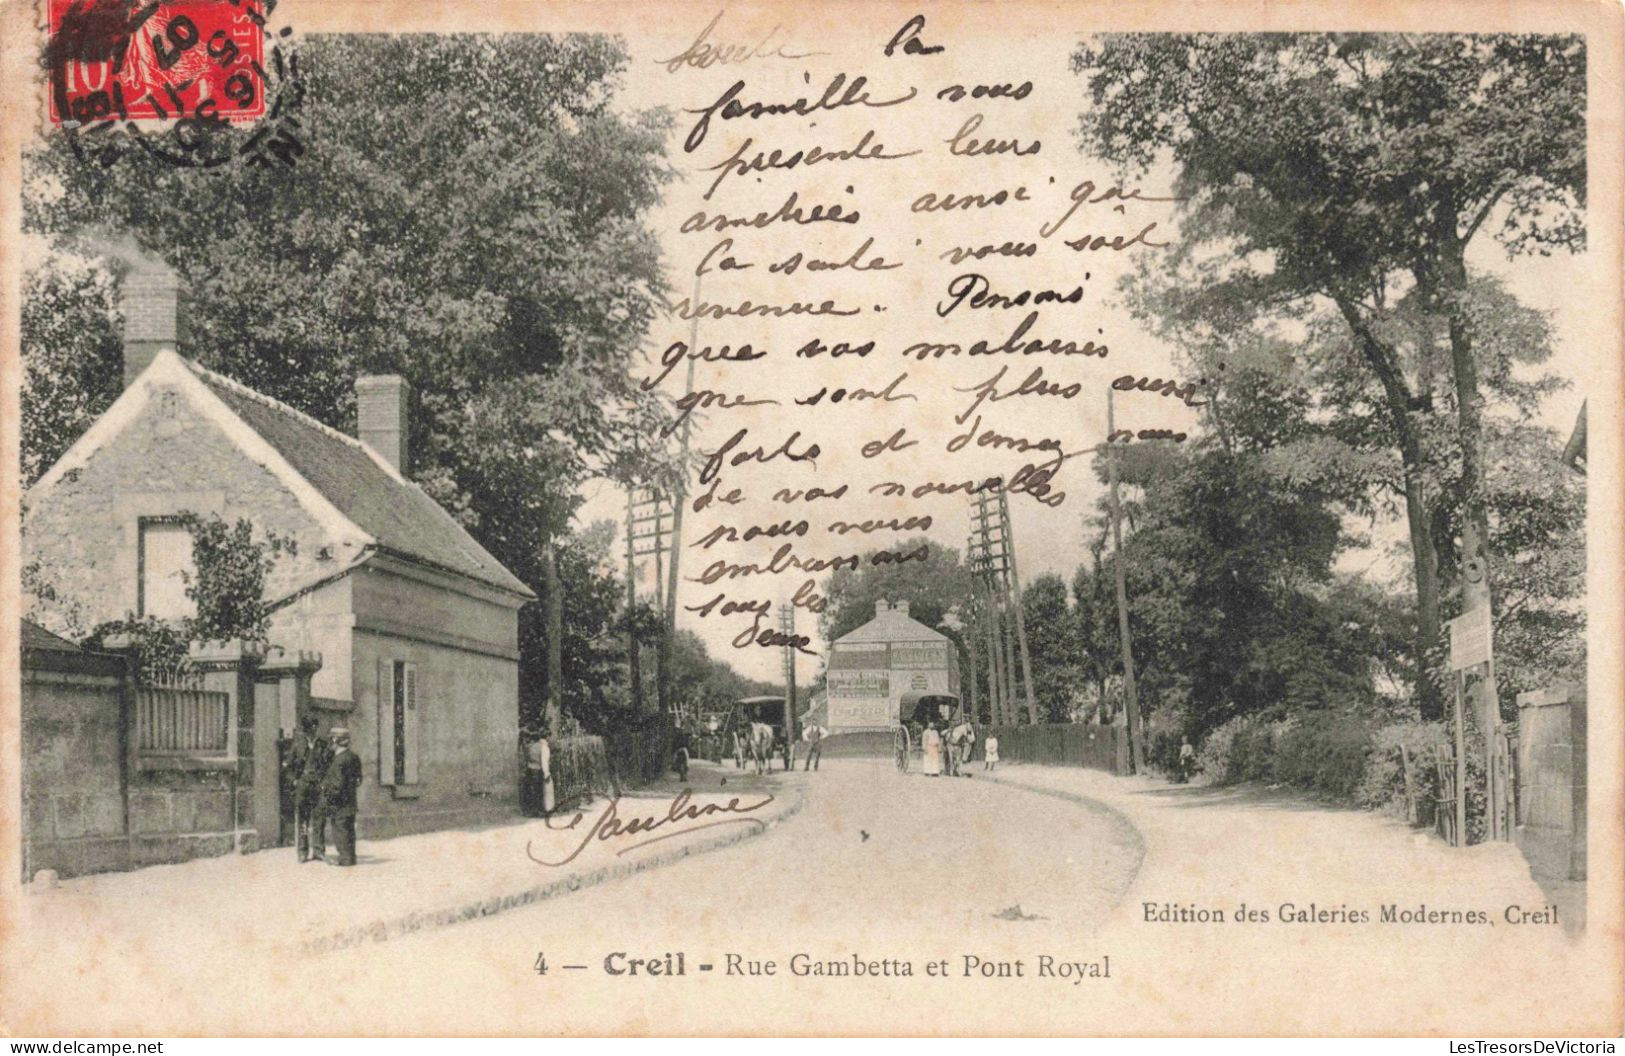 10
POSTES
07
Toute la
famille vous
présente leurs
amitiées ainsi que
la santé vous soit
revenue. Pensons
que vos malaises
ne sont plus aussi
forts et donnez nous
de vos nouvelles
nous vous
embrassons
tous les
deux
Pauline
Edition des Galeries Modernes, Creil
4 — Creil - Rue Gambetta et Pont Royal
LesTresorsDeVictoria